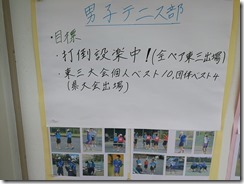 男子テニス部
・目標
・打倒設楽中!(全ペア東三出場)
・東三大会個人ベスト10,団体ベスト4
(県大会出場)